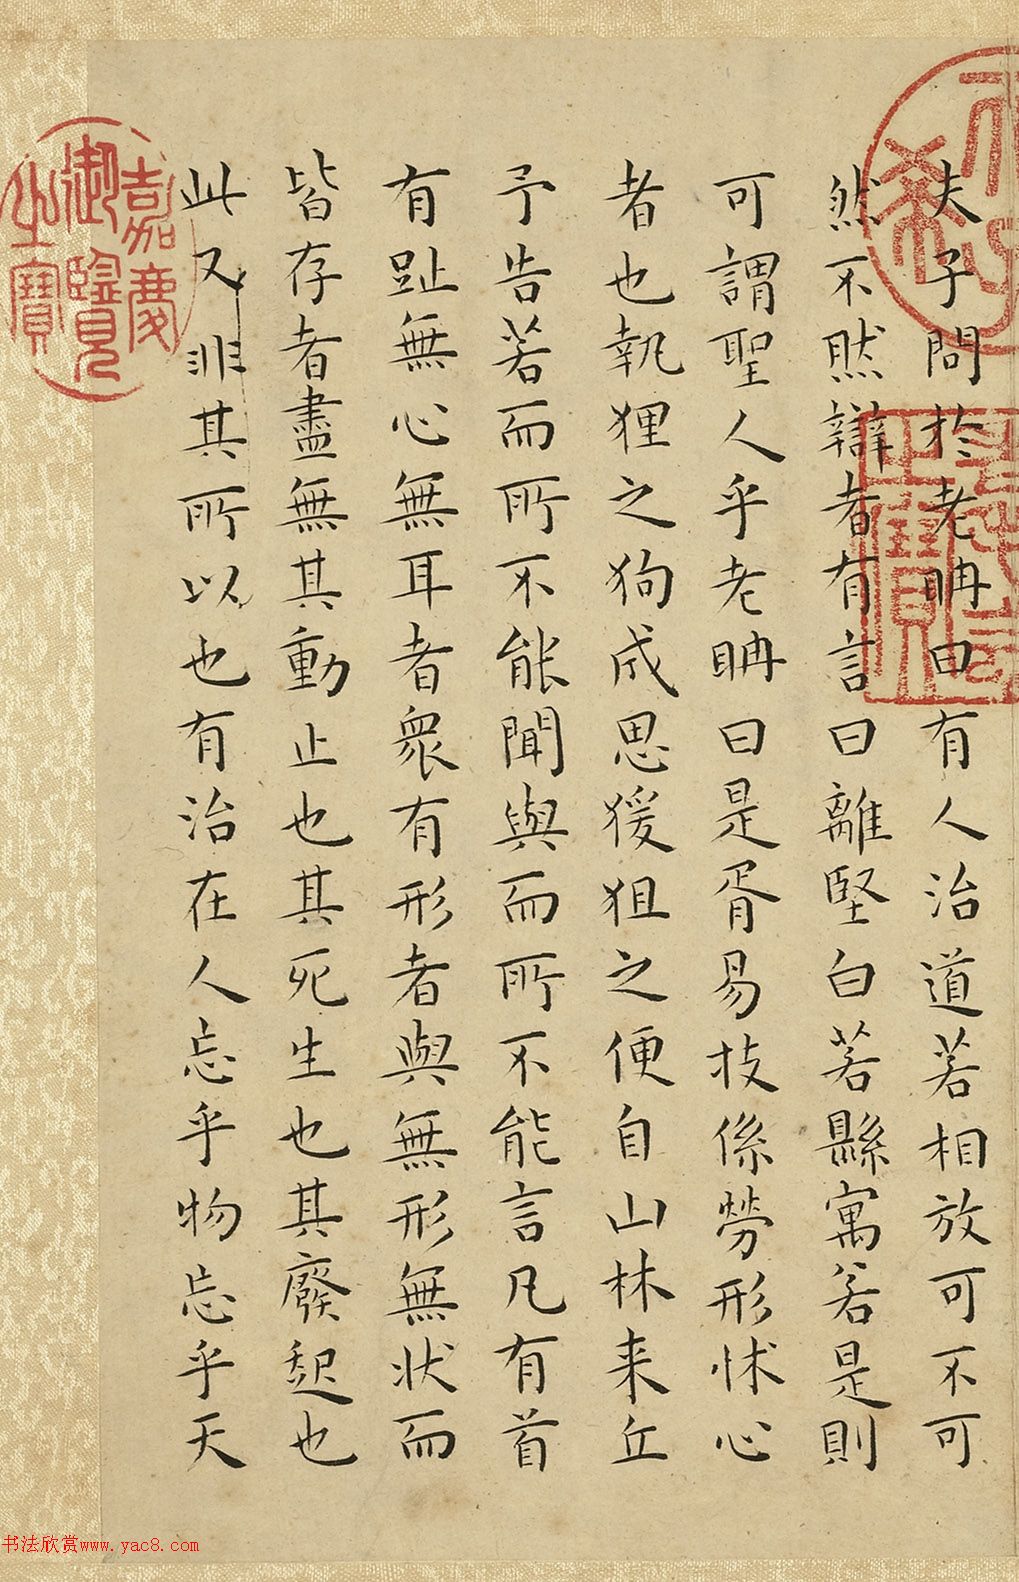 夫子問於老聃曰有人治道若相放可不可
然不然辯者有言曰離堅白若縣寓若是則
可謂聖人乎老聃曰是胥易技係勞形怵心
者也執狸之狗成思猨狙之便自山林来丘
予告若而所不能聞與而所不能言凡有首
有趾無心無耳者衆有形者與無形無狀而
皆存者盡無其動止也其死生也其廢起也
此又非其所以也有治在人忘乎物忘乎天
嘉慶
御覽
之寶
书法欣赏www.yac8.com